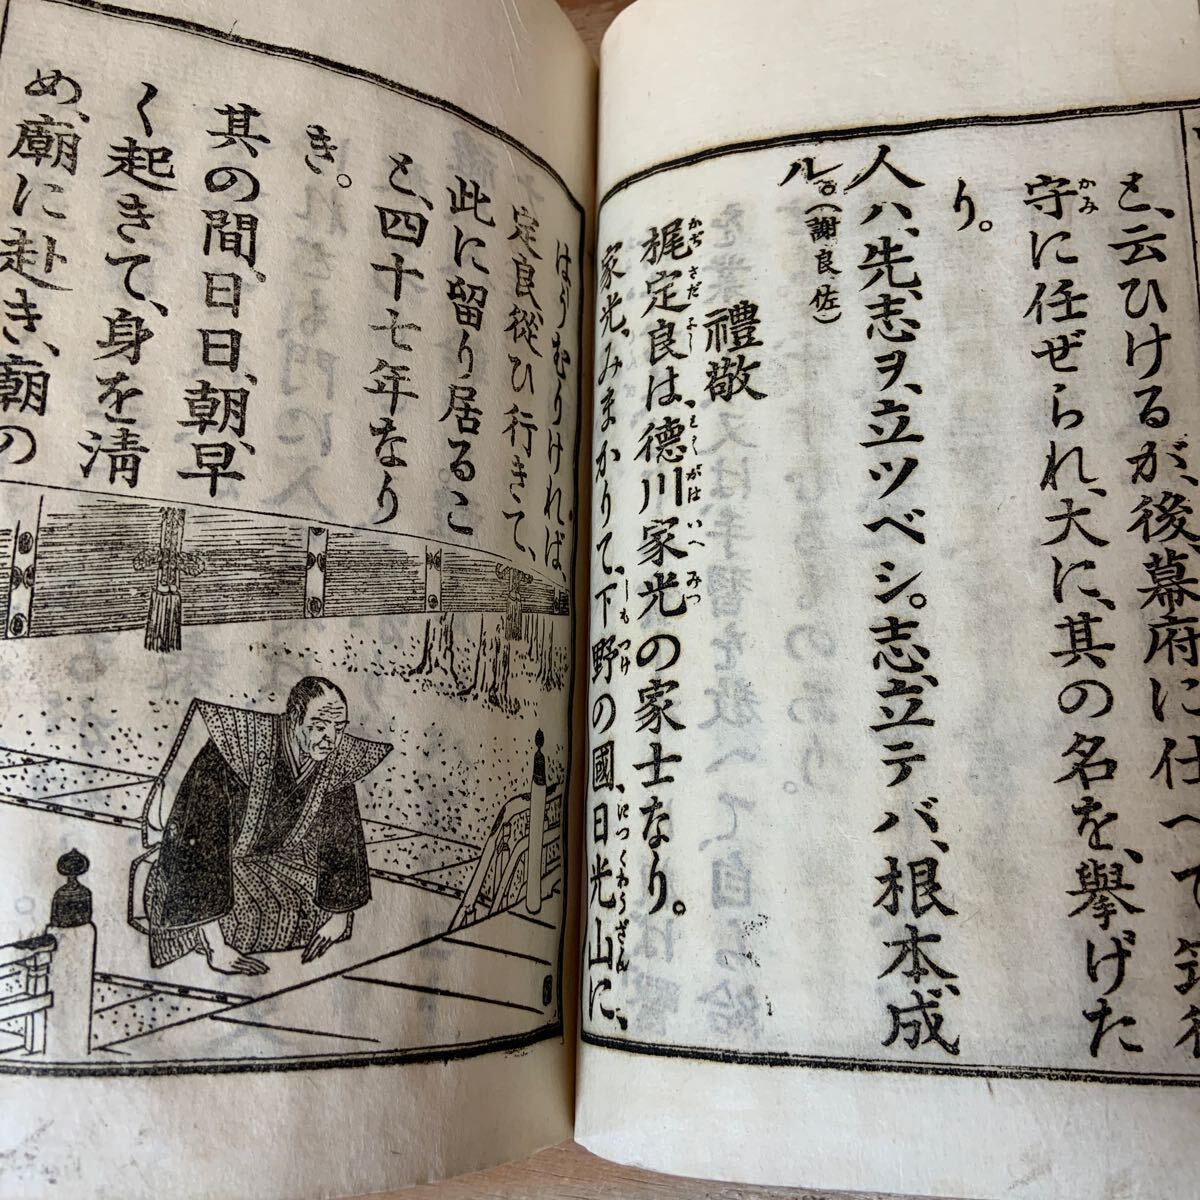 と、云ひけるが、後幕府に仕へて、
守に任ぜられ、大に、其の名を、擧げた
り。
人ハ、先、志ヲ、立ツベシ。志、立テバ、根本、成
ル。(謝良佐)
禮敬
梶定良は、德川家光の家士なり。
家光、みまかりて、下野の國、日光山に、
はうむりければ、
定良、從ひ行きて、
此に留り居るこ
と、四十七年なり
き。
其の間、日日、朝、早
く起きて、身を淸
め、廟に赴き、廟の